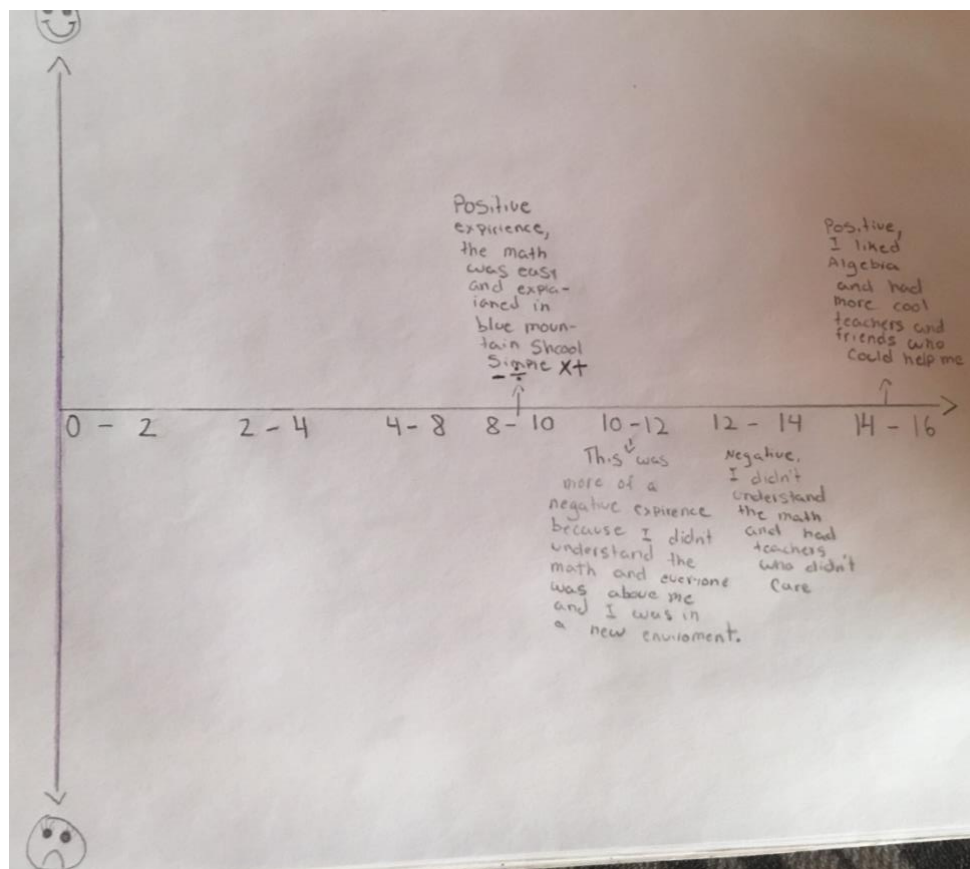 Positive
expirience,
the math
was easy
and expla-
ianed in
blue moun-
tain Shcool
Simple x+
- ÷
Positive,
I liked
Algebra
and had
more cool
teachers and
friends who
could help me
0 - 2 2 - 4 4 - 8 8 - 10 10 - 12 12 - 14 14 - 16
This was
more of a
negative expirence
because I didnt
understand the
math and everyone
was above me
and I was in
a new enviroment.
Negative.
I didn't
understand
the math
and had
teachers
who didn't
care